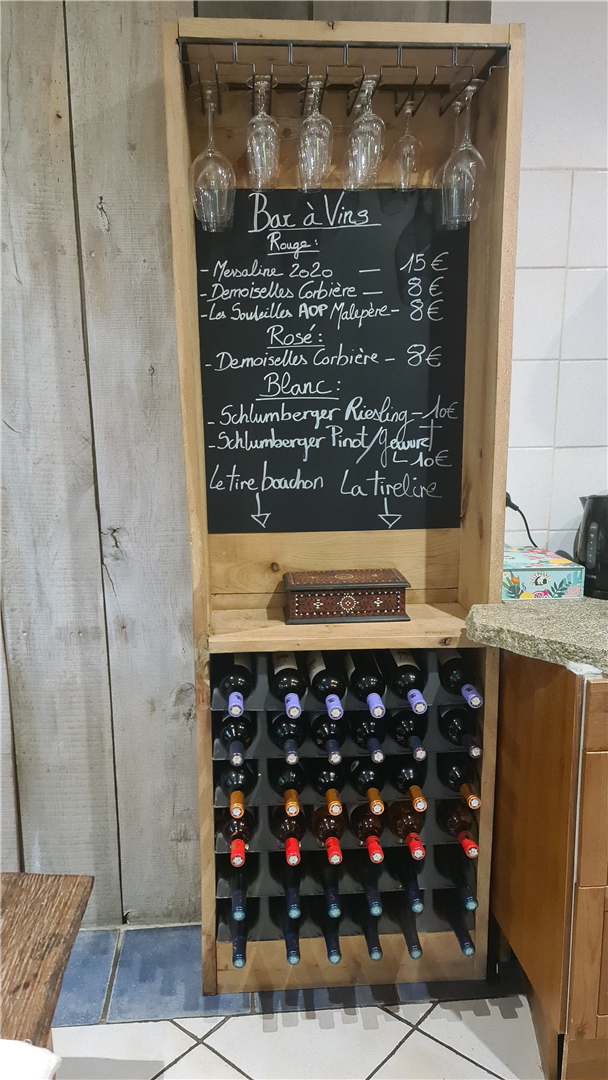 Bar à Vins
Rouge:
- Messaline 2020 — 15€
- Demoiselles Corbière — 8€
- Les Souleilles AOP Malepère - 8€
Rosé:
- Demoiselles Corbière - 8€
Blanc:
- Schlumberger Riesling - 10€
- Schlumberger Pinot/Gewurt
10€
Le tire bouchon La tirelire